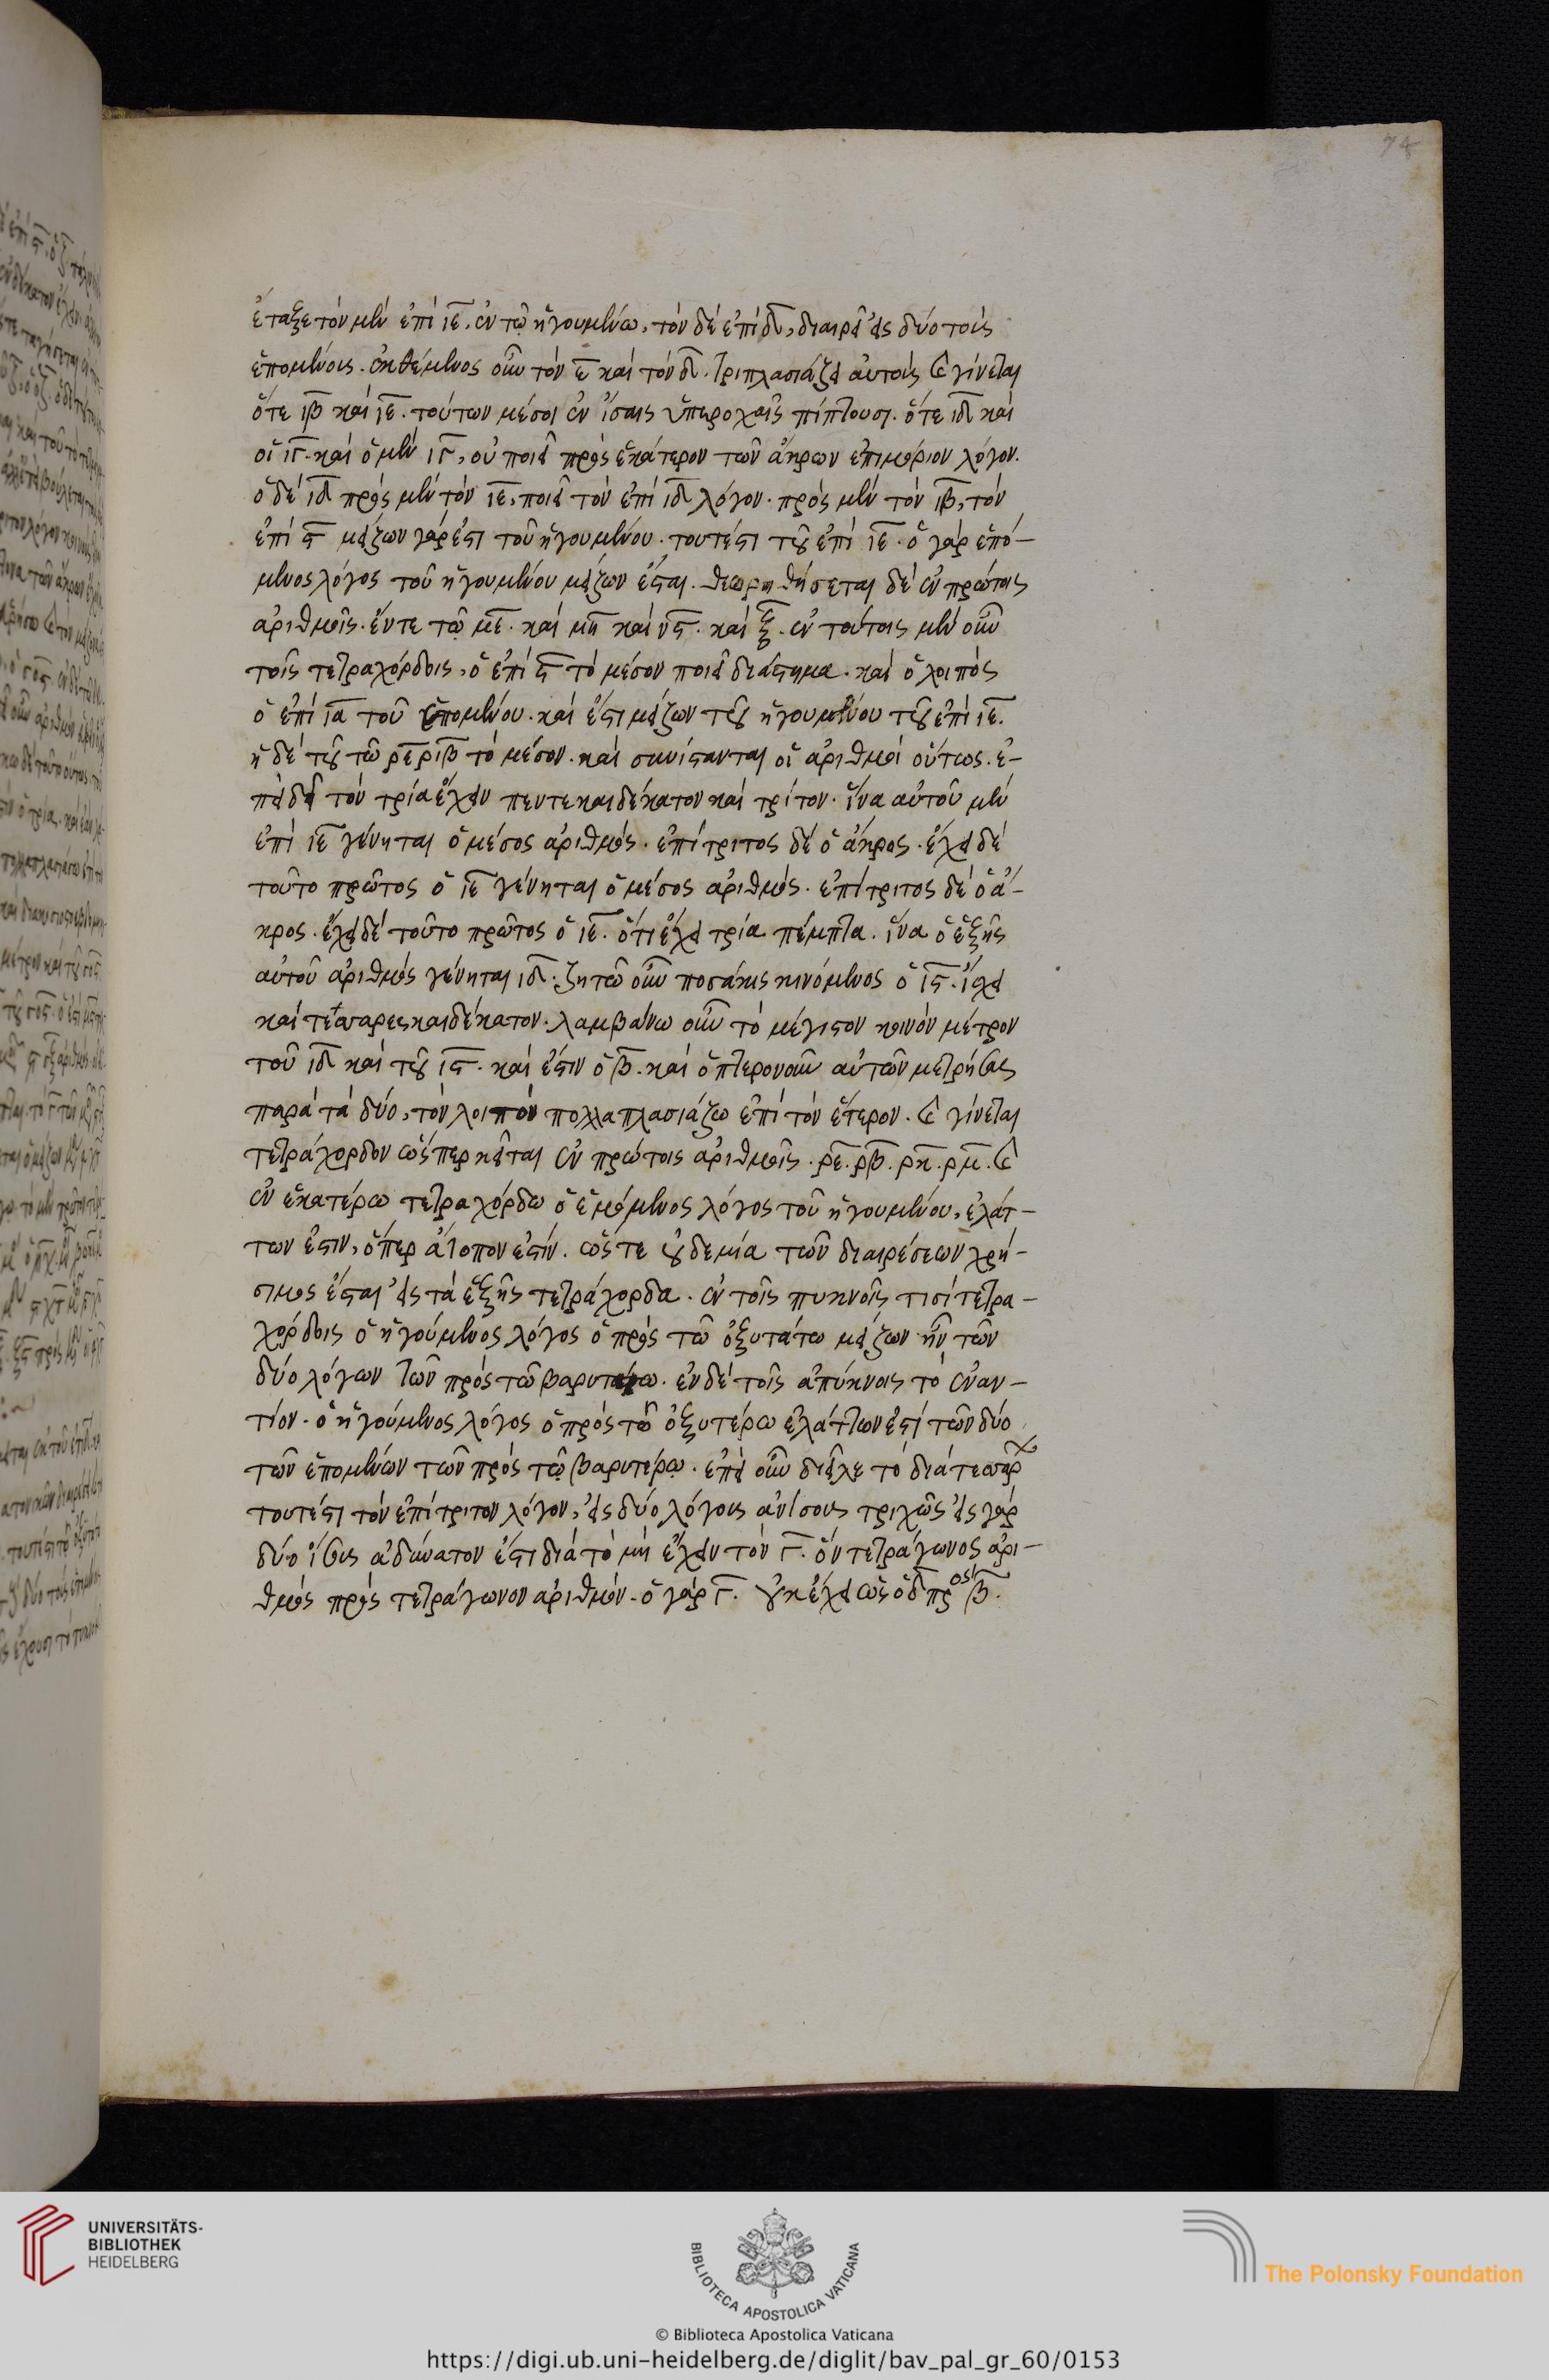 74
ἔταξε τὸν μὲν ἐπὶ ιε, ἐν τῷ ἡγουμένω, τὸν δὲ ἐπὶ δ, διαιρεῖ εἰς δύο τοῖς
ἑπομένοις. ἐκθέμενος οὖν τὸν ε καὶ τὸν δ. τριπλασιάζει αὐτοὺς καὶ γίνεται
ὅτε ιβ καὶ ιε. τούτων μέσοι ἐν ἴσαις ὑπεροχαῖς πίπτουσι. ὅτε ιδ καὶ
οἱ ιγ. καὶ ὁ μὲν ιγ, οὐ ποιεῖ πρὸς ἑκάτερον τῶν ἄκρων ἐπιμόριον λόγον.
ὁ δὲ ιδ πρὸς μὲν τὸν ιε, ποιεῖ τὸν ἐπὶ ιδ λόγον. πρὸς μὲν τὸν ιβ, τὸν
ἐπὶ ϛ μείζων γάρ ἐστι τοῦ ἡγουμένου. τουτέστι τοῦ ἐπὶ ιε. ὁ γὰρ ἑπό-
μενος λόγος τοῦ ἡγουμένου μείζων ἔσται. θεωρηθήσεται δὲ ἐν πρώτοις
ἀριθμοῖς. ἔν τε τῷ με. καὶ μη καὶ νϛ. καὶ ξ. ἐν τούτοις μὲν οὖν
τοῖς τετραχόρδοις, ὁ ἐπὶ ϛ τὸ μέσον ποιεῖ διάστημα. καὶ ὁ λοιπὸς
ὁ ἐπὶ ια τοῦ ἑπομένου. καὶ ἔστι μείζων τοῦ ἡγουμένου τοῦ ἐπὶ ιε.
ἡ δὲ τοῦ τῶ ρε ριβ τὸ μέσον. καὶ συνίστανται οἱ ἀριθμοὶ οὕτως. ἐ-
πειδὴ τὸν τρία ἔχειν πεντεκαιδέκατον καὶ τρίτον. ἵνα αὐτοῦ μὲν
ἐπὶ ιε γένηται ὁ μέσος ἀριθμός. ἐπίτριτος δὲ ὁ ἄκρος. ἔχει δὲ
τοῦτο πρῶτος ὁ ιε γένηται ὁ μέσος ἀριθμός. ἐπίτριτος δὲ ὁ ἄ-
κρος. ἔχει δὲ τοῦτο πρῶτος ὁ ιε. ὅτι ἔχει τρία πέμπτα. ἵνα ὁ ἑξῆς
αὐτοῦ ἀριθμὸς γένηται ιδ. ζητῶ οὖν ποσάκις κινόμενος ὁ ιϛ. ἴσχει
καὶ τεσσαρεςκαιδέκατον. λαμβάνω οὖν τὸ μέγιστον κοινὸν μέτρον
τοῦ ιδ καὶ τοῦ ιϛ. καὶ ἔστιν ὁ β. καὶ ὁπτερονοῦν αὐτῶν μετρήσας
παρὰ τὰ δύο, τὸν λοιπὸν πολλαπλασιάζω ἐπὶ τὸν ἕτερον. καὶ γίνεται
τετράχορδον ὥσπερ κεῖται ἐν πρώτοις ἀριθμοῖς. ρε. ρβ. ρκ. ρμ. καὶ
ἐν ἑκατέρω τετραχόρδω ὁ ἑπόμενος λόγος τοῦ ἡγουμένου, ἐλάτ-
των ἐστιν, ὅπερ ἄτοπον ἐστίν. ὥστε οὐδεμία τῶν διαιρέσεων χρή-
σιμος ἔσται εἰς τὰ ἑξῆς τετράχορδα. ἐν τοῖς πυκνοῖς τισὶ τετρα-
χόρδοις ὁ ἡγούμενος λόγος ὁ πρὸς τῶ ὀξυτάτω μείζων ἦν τῶν
δύο λόγων τῶν πρὸς τῶ βαρυτάτω. ἐν δὲ τοῖς ἀπύκνοις τὸ ἐναν-
τίον. ὁ ἡγούμενος λόγος ὁ πρὸς τῶ ὀξυτέρω ἐλάττων ἐστὶ τῶν δύο
τῶν ἑπομένων τῶν πρὸς τῷ βαρυτέρῳ. ἐπεὶ οὖν διεῖλε τὸ διὰ τεσσάρ
τουτέστι τὸν ἐπίτριτον λόγον, εἰς δύο λόγους ἀνίσους τριχῶς εἰς γὰρ
δύο ἴσους ἀδύνατον ἐστι διὰ τὸ μὴ ἔχειν τὸν γ. ὃν τετράγωνος ἀρι-
θμὸς πρὸς τετράγωνον ἀριθμόν. ὁ γὰρ γ. οὐκ ἔχει ὡς ὁ δ πρὸς β.
UNIVERSITÄTS-
BIBLIOTHEK
HEIDELBERG
BIBLIOTECA APOSTOLICA VATICANA
The Polonsky Foundation
© Biblioteca Apostolica Vaticana
https://digi.ub.uni-heidelberg.de/diglit/bav_pal_gr_60/0153